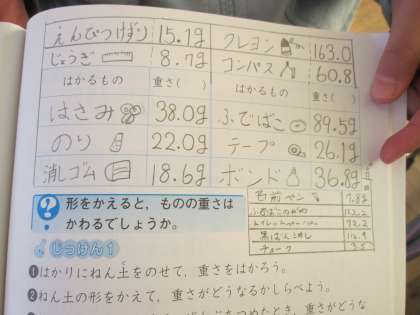 えんぴつけずり 15.1g クレヨン 163.0
じょうぎ 8.7g コンパス 60.8
はかるもの 重さ( ) はかるもの 重さ( )
はさみ 38.0g ふでばこ 89.5g
のり 22.0g テープ 26.1g
消しゴム 18.6g ボンド 36.8g
名前ペン 7.8g
黒ばん消し
チョーク 3.5
? 形をかえると，ものの重さは
かわるでしょうか。
じっけん1
❶はかりにねん土をのせて，重さをはかろう。
❷ねん土の形をかえて，重さがどうなるかしらべよう。